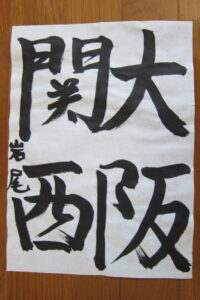 大阪
関西
岩尾